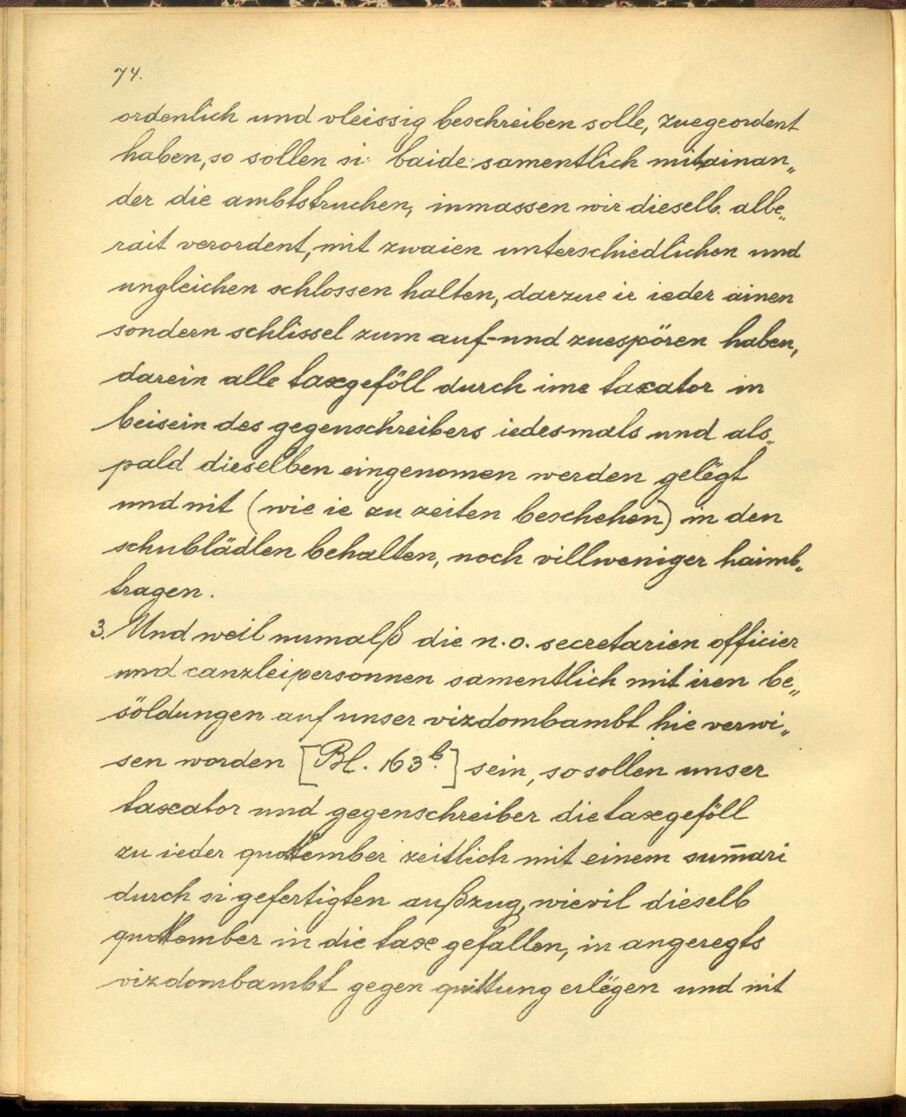 74.
ordenlich und vleissig beschreiben solle, zuegeordent
haben, so sollen si baide samentlich mitainan„
der die ambtstruchen, inmassen wir dieselb. albe„
rait verordent, mit zwaien unterschiedlichen und
ungleichen schlossen halten, darzue ir ieder ainen
sondern schlissel zum auf- und zuespören haben,
darein alle taxgeföll durch ime taxator in
beisein des gegenschreibers iedesmals und als„
pald dieselben eingenomen werden gelegt
und nit (wie ie zu zeiten beschehen) in den
schublädlen behalten, noch villweniger haimb„
tragen.
3. Und weil numalß die n. o. secretarien officier
und canzleipersonnen samentlich mit iren be„
söldungen auf unser vizdombambt hie verwi„
sen worden [Bl. 163 b.] sein, so sollen unser
taxator und gegenschreiber die taxgeföll
zu ieder quottember zeitlich mit einem sum̄ari
durch si gefertigten außzug, wievil dieselb
quottember in die taxe gefallen, in angeregts
vizdombambt gegen quittung erlegen und nit